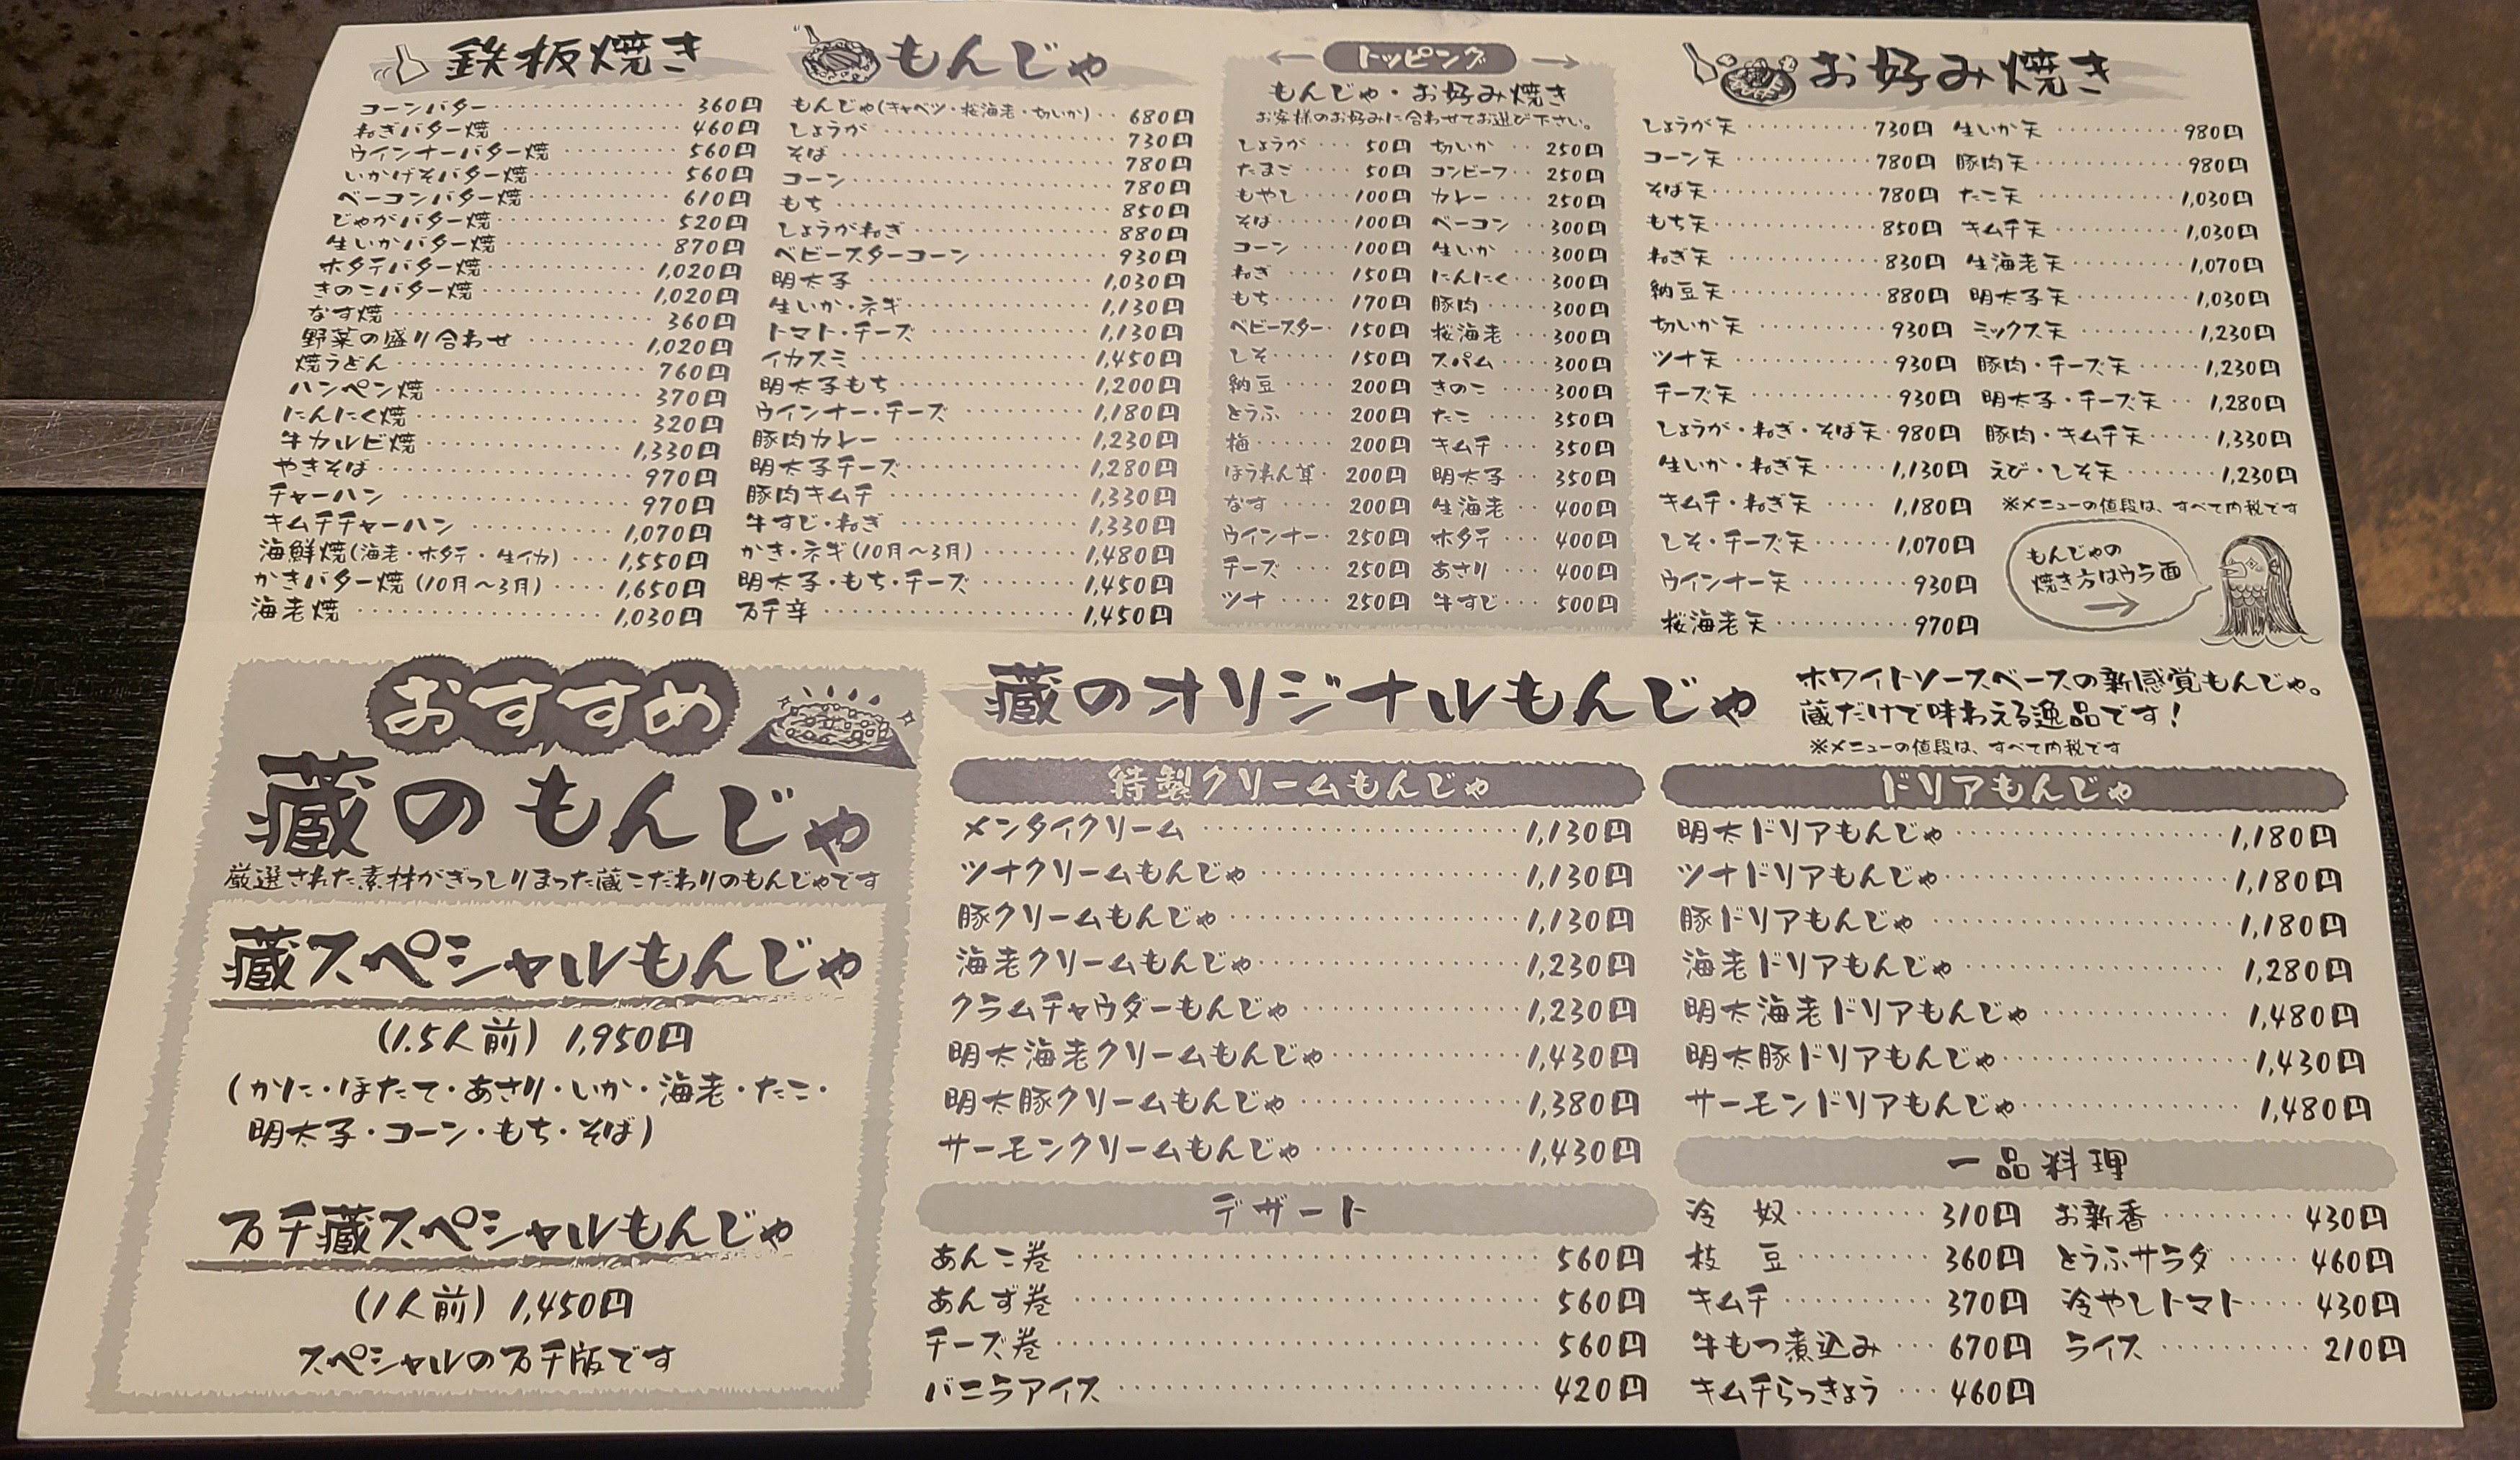 鉄板焼き
コーンバター 360円
ねぎバター焼 460円
ウインナーバター焼 560円
いかげそバター焼 560円
ベーコンバター焼 610円
じゃがバター焼 520円
生いかバター焼 870円
ホタテバター焼 1,020円
きのこバター焼 1,020円
なす焼 360円
野菜の盛り合わせ 1,020円
焼うどん 760円
ハンペン焼 370円
にんにく焼 320円
牛カルビ焼 1,330円
やきそば 970円
チャーハン 970円
キムチチャーハン 1,070円
海鮮焼(海老・ホタテ・生イカ) 1,550円
かきバター焼(10月〜3月) 1,650円
海老焼 1,030円
もんじゃ
もんじゃ(キャベツ・桜海老・切いか) 680円
しょうが 730円
そば 780円
コーン 780円
もち 850円
しょうがねぎ 880円
ベビースターコーン 930円
明太子 1,030円
生いか・ネギ 1,130円
トマト・チーズ 1,130円
イカスミ 1,450円
明太子もち 1,200円
ウインナー・チーズ 1,180円
豚肉カレー 1,230円
明太子チーズ 1,280円
豚肉キムチ 1,330円
牛すじ・ねぎ 1,330円
かき・ネギ(10月〜3月) 1,480円
明太子・もち・チーズ 1,450円
万千辛 1,450円
← トッピング →
もんじゃ・お好み焼き
お客様のお好みに合わせてお選び下さい。
しょうが 50円 切いか 250円
たまご 50円 コンビーフ 250円
もやし 100円 カレー 250円
そば 100円 ベーコン 300円
コーン 100円 生いか 300円
ねぎ 150円 にんにく 300円
もち 170円 豚肉 300円
ベビースター 150円 桜海老 300円
しそ 150円 スパム 300円
納豆 200円 きのこ 300円
とうふ 200円 たこ 350円
梅 200円 キムチ 350円
ほうれん草 200円 明太子 350円
なす 200円 生海老 400円
ウインナー 250円 ホタテ 400円
チーズ 250円 あさり 400円
ツナ 250円 牛すじ 500円
お好み焼き
しょうが天 730円 生いか天 980円
コーン天 780円 豚肉天 980円
そば天 780円 たこ天 1,030円
もち天 850円 キムチ天 1,030円
ねぎ天 830円 生海老天 1,070円
納豆天 880円 明太子天 1,030円
切いか天 930円 ミックス天 1,230円
ツナ天 930円 豚肉・チーズ天 1,230円
チーズ天 930円 明太子・チーズ天 1,280円
しょうが・ねぎ・そば天 980円 豚肉・キムチ天 1,330円
生いか・ねぎ天 1,130円 えび・しそ天 1,230円
キムチ・ねぎ天 1,180円 ※メニューの値段は、すべて内税です
しそ・チーズ天 1,070円
ウインナー天 930円
桜海老天 970円
もんじゃの
焼き方はウラ面
→
おすすめ
蔵のもんじゃ
厳選された素材がぎっしりまった蔵こだわりのもんじゃです
蔵スペシャルもんじゃ
(1.5人前) 1,950円
(かに・ほたて・あさり・いか・海老・たこ・
明太子・コーン・もち・そば)
万千蔵スペシャルもんじゃ
(1人前) 1,450円
スペシャルの万千版です
蔵のオリジナルもんじゃ
ホワイトソースベースの新感覚もんじゃ。
蔵だけで味わえる逸品です!
※メニューの値段は、すべて内税です
特製クリームもんじゃ
メンタイクリーム 1,130円
ツナクリームもんじゃ 1,130円
豚クリームもんじゃ 1,130円
海老クリームもんじゃ 1,230円
クラムチャウダーもんじゃ 1,230円
明太海老クリームもんじゃ 1,430円
明太豚クリームもんじゃ 1,380円
サーモンクリームもんじゃ 1,430円
ドリアもんじゃ
明太ドリアもんじゃ 1,180円
ツナドリアもんじゃ 1,180円
豚ドリアもんじゃ 1,180円
海老ドリアもんじゃ 1,280円
明太海老ドリアもんじゃ 1,480円
明太豚ドリアもんじゃ 1,430円
サーモンドリアもんじゃ 1,480円
デザート
あんこ巻 560円
あんず巻 560円
チーズ巻 560円
バニラアイス 420円
一品料理
冷奴 310円 お新香 430円
枝豆 360円 とうふサラダ 460円
キムチ 370円 冷やしトマト 430円
牛もつ煮込み 670円 ライス 210円
キムチらっきょう 460円